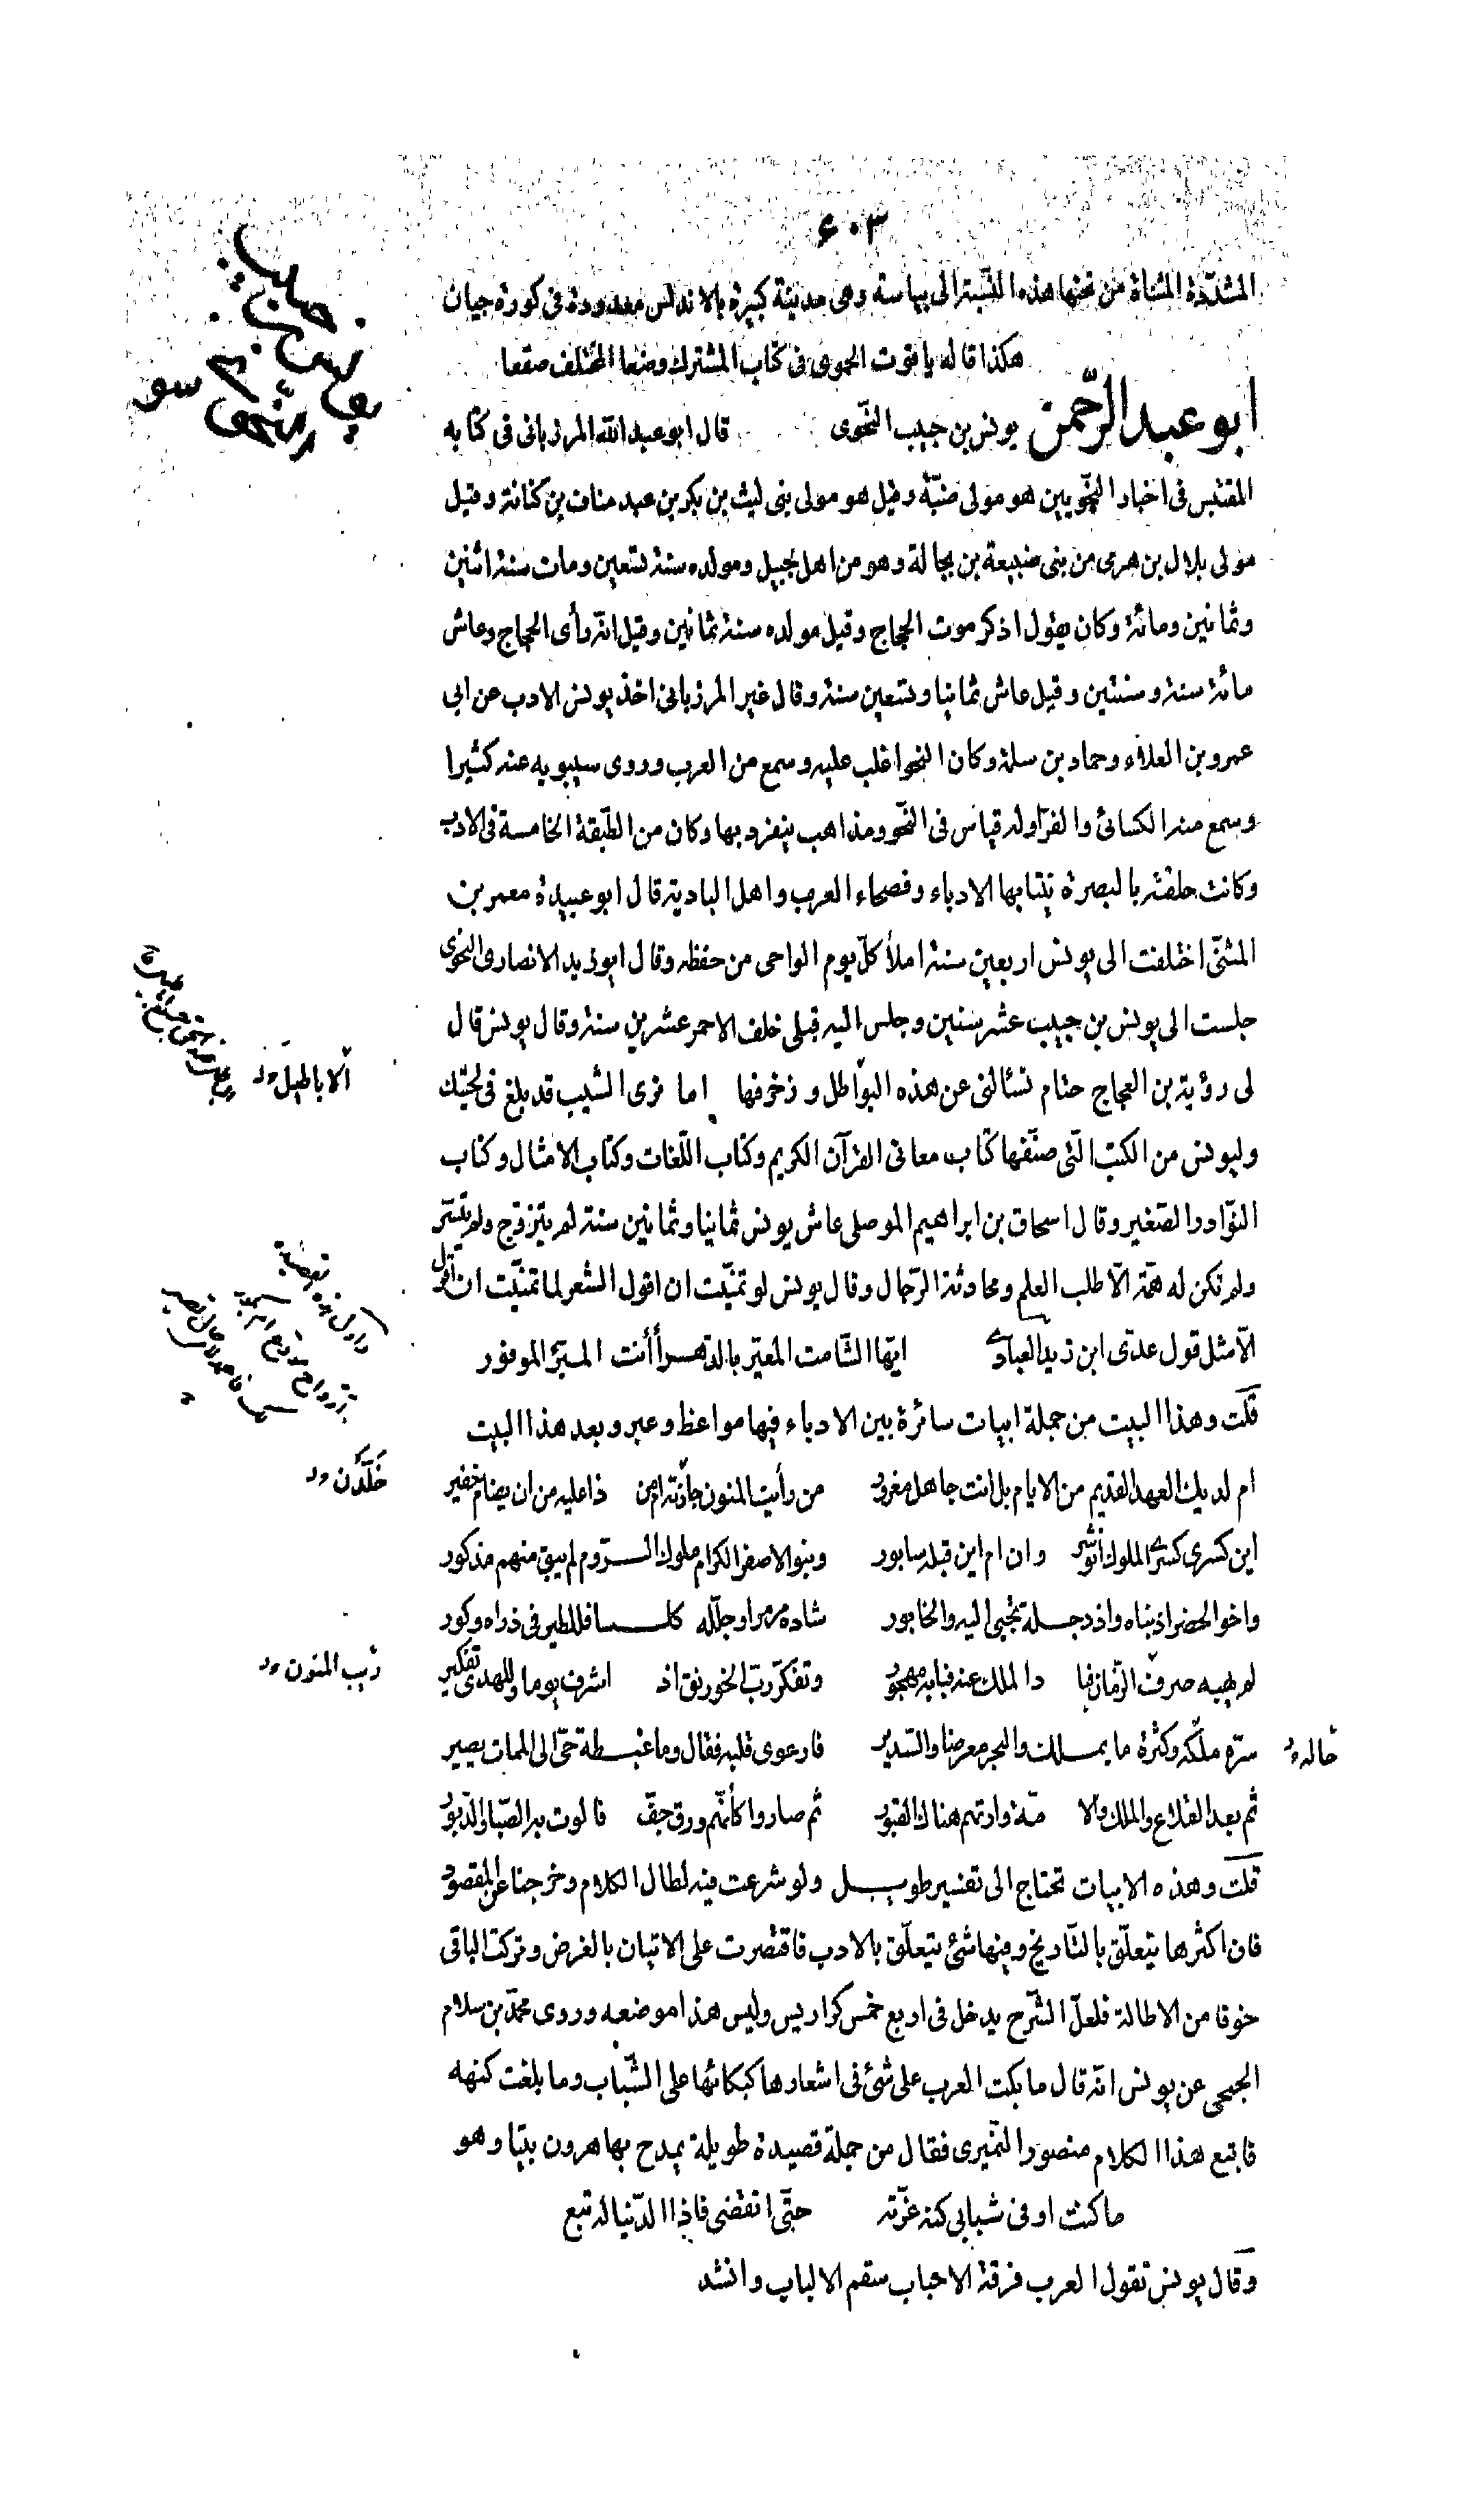 ٤٠٣
المشدّدة المثناة من تحتها هذه النّسبة الى بياسة وهى مدينة كبيرة بالاندلس معدودة فى كورة جيان
هكذا قاله ياقوت الحموى فى كتاب المشترك وضعا المختلف صقعا
ابو عبد الرّحمن يونس بن حبيب النّحوى قال ابو عبد الله المرزبانى فى كتابه
المقتبس فى اخبار النّحويين هو مولى ضبّة وقيل هو مولى بنى ليث بن بكر بن عبد مناف بن كنانة وقيل
مولى بلال بن هرمى من بنى ضبيعة بن بجالة وهو من اهل جبيل ومولده سنة تسعين ومات سنة اثنين
وثمانين ومائة وكان يقول اذكر موت الحجاج وقيل مولده سنة ثمانين وقيل انّه رأى الحجاج وعاش
مائة سنة وسنتين وقيل عاش ثمانيا وتسعين سنة وقال غير المرزبانى اخذ يونس الادب عن ابى
عمرو بن العلاء وحماد بن سلمة وكان النحو اغلب عليه وسمع من العرب وروى سيبويه عنه كثيرا
وسمع منه الكسائى والفرّا وله قياس فى النّحو ومذاهب ينفرد بها وكان من الطّبقة الخامسة فى الادب
وكانت حلقته بالبصرة ينتابها الادباء وفصحاء العرب واهل البادية قال ابو عبيدة معمر بن
المثنّى اختلفت الى يونس اربعين سنة املأ كلّ يوم الواحى من حفظه وقال ابو زيد الانصارى النحوى
جلست الى يونس بن حبيب عشر سنين وجلس اليه قبلى خلف الاحمر عشرين سنة وقال يونس قال
لى رؤية بن العجاج حتام تسألنى عن هذه البواطل وزخرفها اما ترى الشيب قد بلغ فى لحيتك
الاباطيل
وليونس من الكتب الّتى صنّفها كتاب معانى القرآن الكريم وكتاب اللّغات وكتاب الامثال وكتاب
النّوادر الصّغير وقال اسحاق بن ابراهيم الموصلى عاش يونس ثمانيا وثمانين سنة لم يتزوّج ولم يتسرّ
ولم تكن له همّة الّا طلب العلم ومحادثة الرّجال وقال يونس لو تمنّيت ان اقول الشعر لما تمنّيت ان اقول
الّا مثل قول عدّى ابن زيد العبادى ايّها الشّامت المعيّر بالدّهر أأنت المبرّؤ الموفور
قلت وهذا البيت من جملة ابيات سائرة بين الادباء فيها مواعظ وعبر وبعد هذا البيت
ام لديك العهد القديم من الايام بل انت جاهل مغرور من رأيت المنون جازته ام من ذا عليه من ان يضام خفير
خلّدن
اين كسرى كسرى الملوك انوشر وان ام اين قبله سابور وبنو الاصفر الكرام ملوك الرّوم لم يبق منهم مذكور
واخو الحضر اذ بناه واذ دجلة تجبى اليه والخابور شاده مرمرا وجلّله كلسا فللطير فى ذراه وكور
لم يهبه صرف الزّمان فبا د الملك عنه فبابه مهجور وتفكّر ربّ الخورنق اذ اشرف يوما وللهدى تفكير
ريب المنون
سرّه ملكه وكثرة ما يملك والبحر معرضا والسّدير فارعوى قلبه فقال وما غبطة حىّ الى الممات يصير
حاله
ثم بعد الفلاح والملك والا مّة وارتهم هناك القبور ثم صاروا كأنّهم ورق جفّ فالوت به الصّبا والدّبور
قلت وهذه الابيات تحتاج الى تفسير طويل ولو شرعت فيه لطال الكلام وخرجنا عن المقصود
فان اكثرها يتعلّق بالتّاريخ وفيها شئ يتعلّق بالادب فاقتصرت على الاتيان بالغرض وتركت الباقى
خوفا من الاطالة فلعلّ الشّرح يدخل فى اربع خمس كراريس وليس هذا موضعه وروى محمّد بن سلام
الجمحى عن يونس انّه قال ما بكت العرب على شئ فى اشعارها كبكائها على الشّباب وما بلغت كنهه
فاتبع هذا الكلام منصور النّميرى فقال من جملة قصيدة طويلة يمدح بها هرون بيتا وهو
ما كنت اوفى شبابى كنه غرّته حتّى انقضى فاذا الدّنيا له تبع
وقال يونس تقول العرب فرقة الاحباب سقم الالباب وانشد